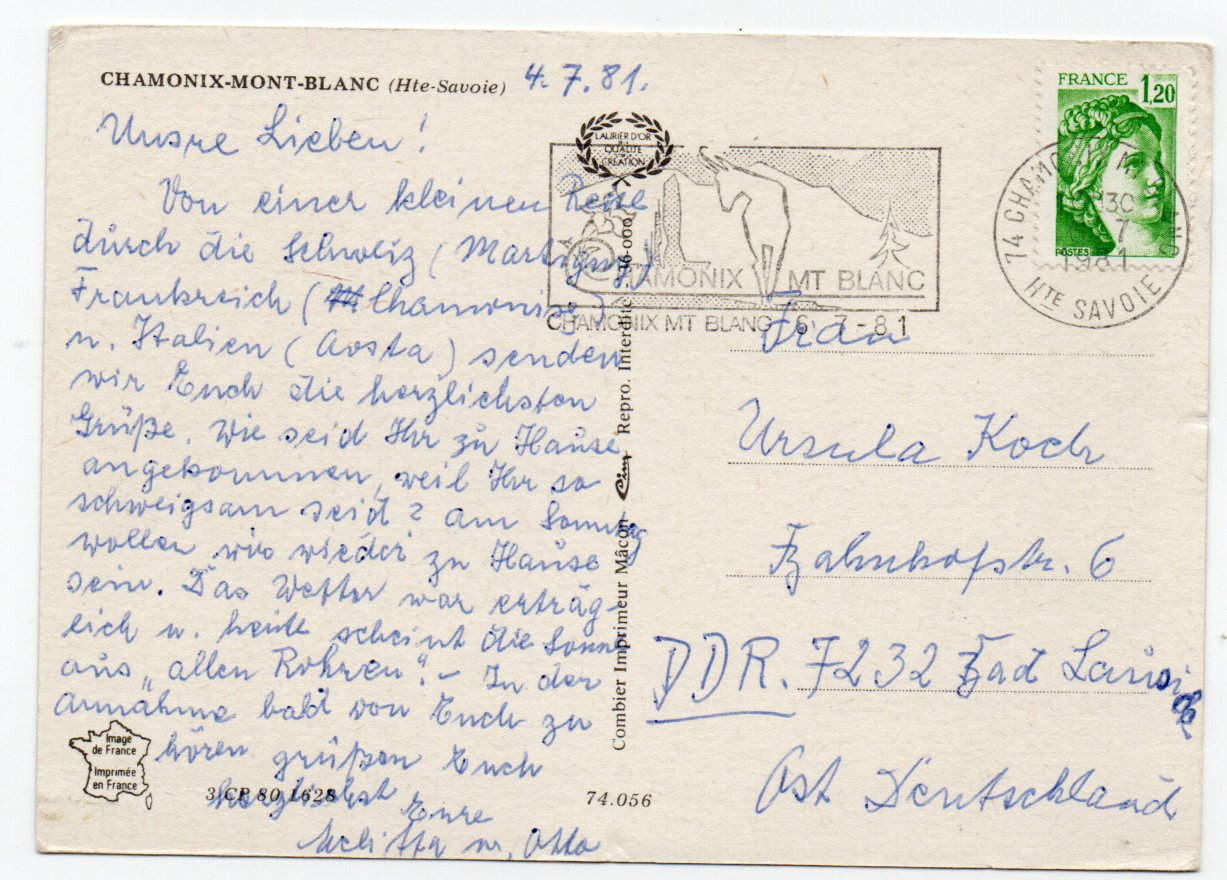 CHAMONIX-MONT-BLANC (Hte-Savoie) 4.7.81.
Unsre Lieben!
Von einer kleinen Reise
durch die Schweiz (Martigny)
Frankreich (Chamonix)
u. Italien (Aosta) senden
wir Euch die herzlichsten
Grüße. Wie seid Ihr zu Hause
angekommen, weil Ihr so
schweigsam seid? Am Sonntag
wollen wir wieder zu Hause
sein. Das Wetter war erträg-
lich u. heute scheint die Sonne
aus „allen Rohren“. – In der
Annahme bald von Euch zu
hören grüßen Euch
herzlichst Eure
Melitta u. Otto
Image
de France
Imprimée
en France
3 CP 80 1628
74.056
Combier Imprimeur Mâcon Cim Repro. Interdite 36-000
LAURIER D'OR
QUALITE
CREATION
CHAMONIX MT BLANC
CHAMONIX MT BLANC 6-7-81
FRANCE 1,20
POSTES
74 CHAMONIX MONT BLANC
30
7
1981
HTE SAVOIE
Frau
Ursula Koch
Bahnhofstr. 6
DDR. 7232 Bad Lausick
Ost Deutschland